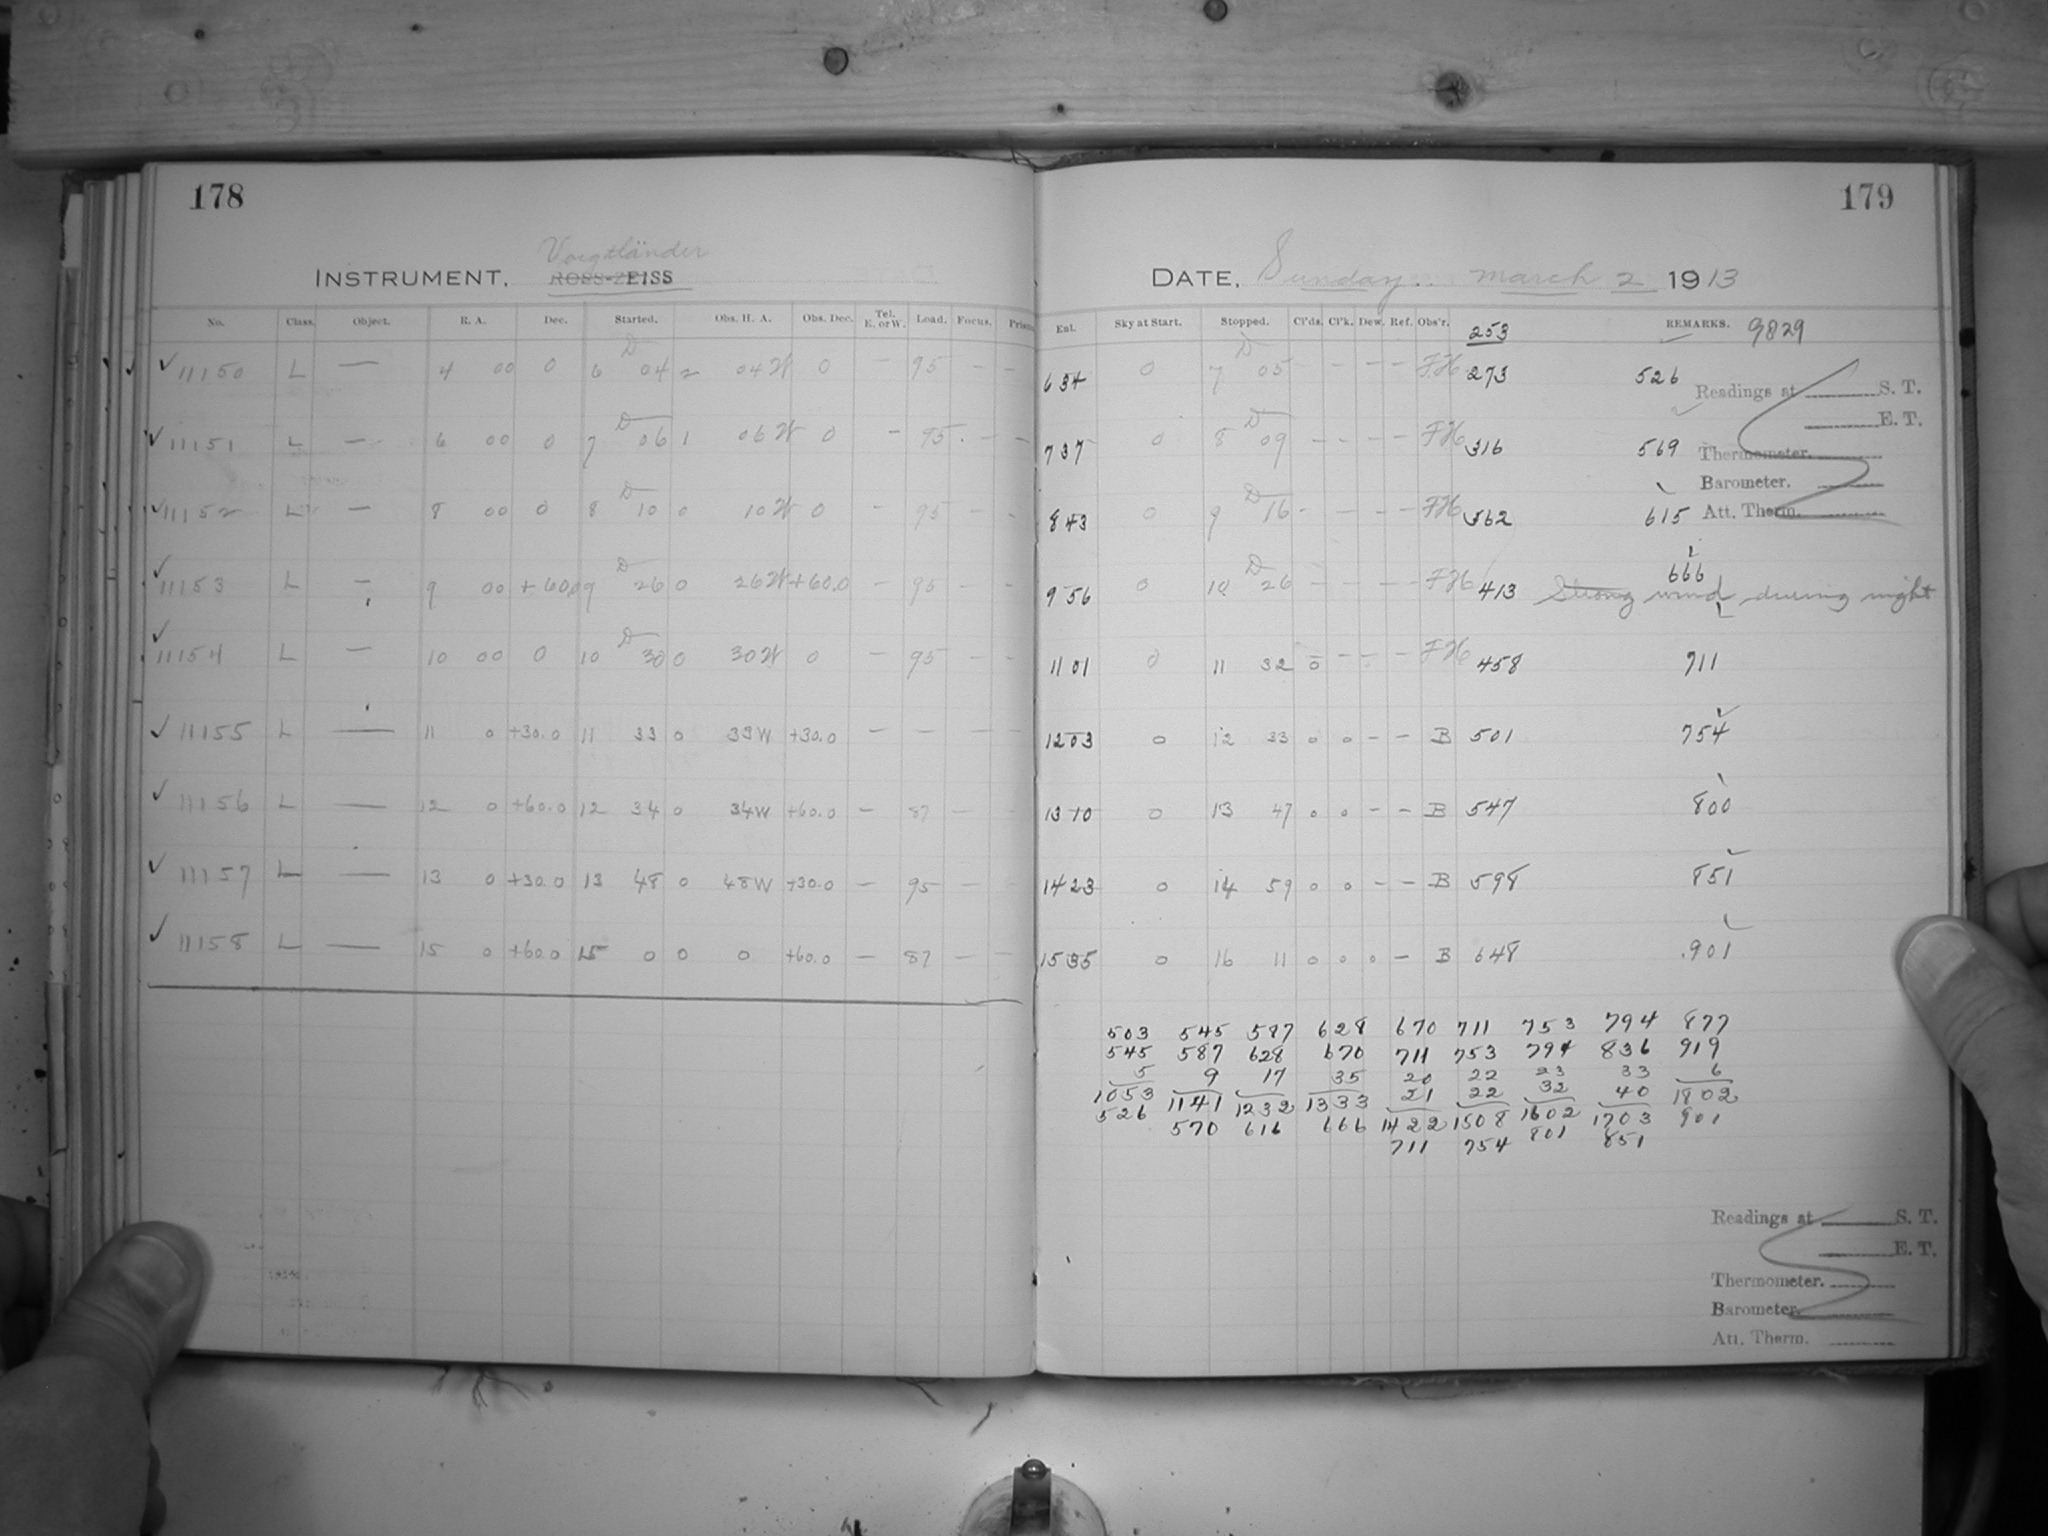 178
Voigtländer
INSTRUMENT. ROSS-ZEISS
No. Class. Object. R. A. Dec. Started. Obs. H. A. Obs. Dec. Tel. E. or W. Load. Focus.
✓ 11150 L — 4 00 0 6 D 04 2 04 W 0 — 95 — —
✓ 11151 L — 6 00 0 7 D 06 1 06 W 0 — 95 — —
✓ 11152 L — 8 00 0 8 D 10 0 10 W 0 — 95 — —
✓ 11153 L — 9 00 +60.0 9 D 26 0 26 W +60.0 — 95 — —
✓ 11154 L — 10 00 0 10 D 30 0 30 W 0 — 95 — —
✓ 11155 L — 11 0 +30.0 11 33 0 33 W +30.0 — — — —
✓ 11156 L — 12 0 +60.0 12 34 0 34 W +60.0 — 87 — —
✓ 11157 L — 13 0 +30.0 13 48 0 48 W +30.0 — 95 — —
✓ 11158 L — 15 0 +60.0 15 0 0 0 +60.0 — 87 — —
179
DATE. Sunday. March 2 1913
Ent. Sky at Start. Stopped. Cl'ds. Cl'k. Dew. Ref. Obs'r. 253 REMARKS. 9829
6 34 0 7 D 05 — — — — F.H. 273 526
Readings at S. T.
E. T.
7 37 0 8 D 09 — — — — FH 316 569
Thermometer.
Barometer.
8 43 0 9 D 16 — — — — FH 362 615
Att. Therm.
9 56 0 10 D 26 — — — — FH 413 666
Strong wind during night
11 01 0 11 32 0 — — — FH 458 711
12 03 0 12 33 0 0 — — B 501 754
13 10 0 13 47 0 0 — — B 547 800
14 23 0 14 59 0 0 — — B 598 851
15 35 0 16 11 0 0 0 — B 648 901
503 545 587 628 670 711 753 794 877
545 587 628 670 711 753 794 836 919
5 9 17 35 20 22 23 33 6
1053 1141 1232 1333 21 22 32 40 1802
526 570 616 666 1422 1508 1602 1703 901
711 754 801 851
Readings at S. T.
E. T.
Thermometer.
Barometer.
Att. Therm.